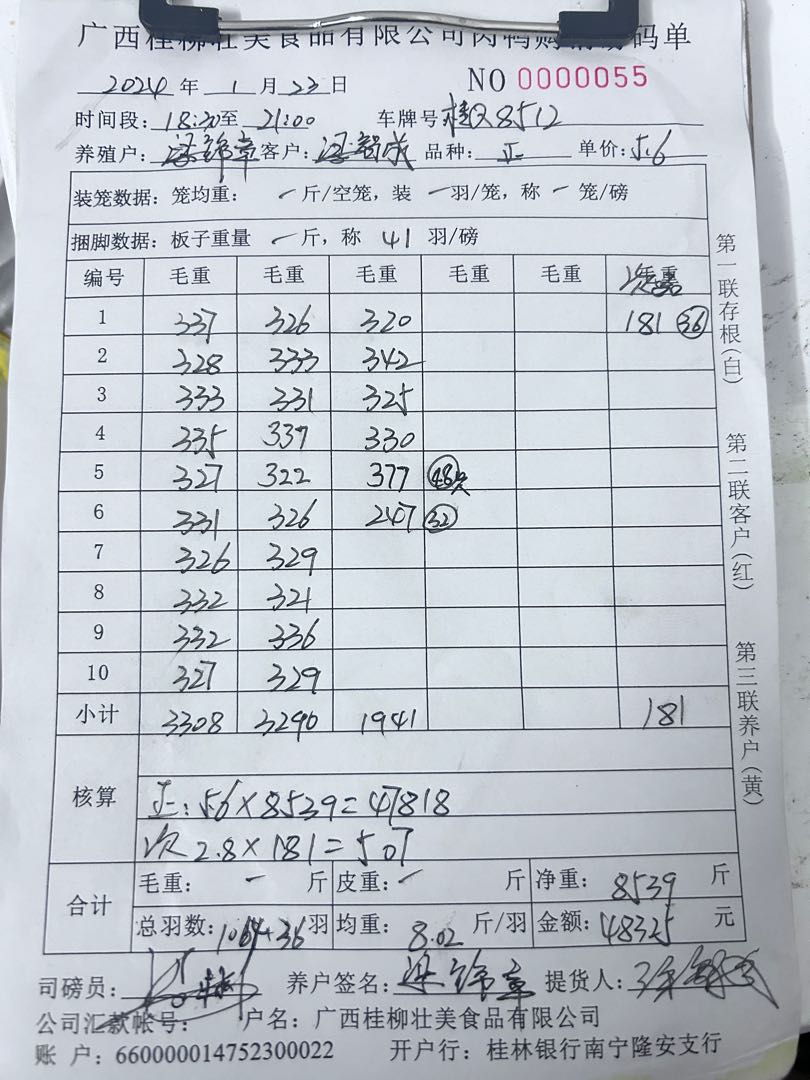 广西桂柳壮美食品有限公司肉鸭购销磅码单
2024 年 1 月 23 日 NO 0000055
时间段: 18:30至 21:00 车牌号 桂Q8512
养殖户: 梁锦章 客户: 品种: 正 单价: 5.6
装笼数据: 笼均重: 一 斤/空笼, 装 一 羽/笼, 称 一 笼/磅
捆脚数据: 板子重量 一 斤, 称 41 羽/磅
编号 毛重 毛重 毛重 毛重 毛重
1 337 326 320 181 36
2 328 333 342
3 333 331 325
4 335 337 330
5 327 322 377 48只
6 331 326 247 32
7 326 329
8 332 321
9 332 336
10 327 329
小计 3308 3290 1941 181
核算
正: 5.6×8539=47818
次 2.8×181=507
合计
毛重: 一 斤 皮重: 一 斤 净重: 8539 斤
总羽数: 1064+36 羽 均重: 8.02 斤/羽 金额: 48325 元
司磅员: 养户签名: 梁锦章 提货人:
公司汇款帐号: 户名: 广西桂柳壮美食品有限公司
账 户: 660000014752300022 开户行: 桂林银行南宁隆安支行
第一联存根(白)
第二联客户(红)
第三联养户(黄)